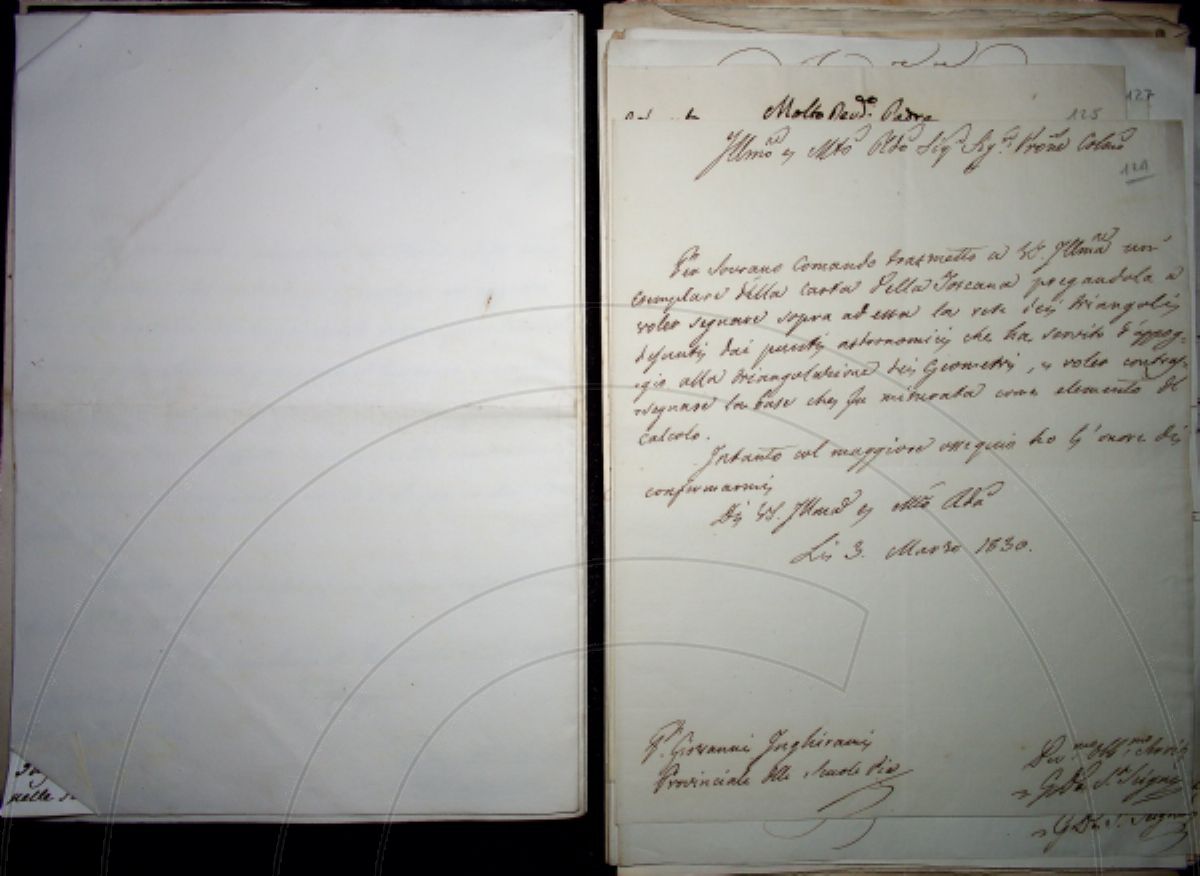 127
Molto Revdo. Padre
125
Illmo e Mto Revdo Sigr Sigr Prone Colmo
124
Per Sovrano Comando trasmetto a VS. Illma un'
esemplare della carta della Toscana pregandola a
voler segnare sopra ad essa la rete dei triangoli
desunti dai punti astronomici che ha servito d'appog-
gio alla triangolazione dei Geometri, e voler contras-
segnare la base che fu misurata come elemento di
calcolo.
Intanto col maggiore ossequio ho l'onore di
confermarmi
Di VS. Illma e Mto Revda
Li 3. Marzo 1830.
P. Giovanni Inghirami
Provinciale delle Scuole Pie
nelle